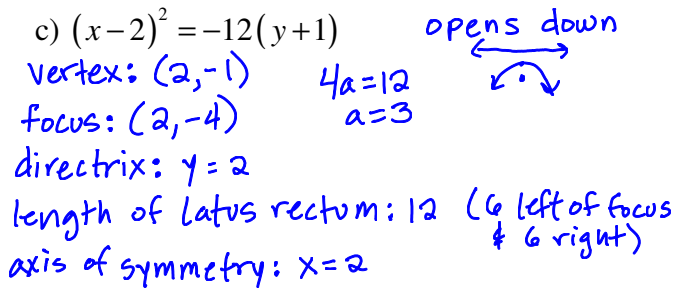 c) (x−2)² = −12(y+1)
opens down
vertex: (2,-1)
4a=12
focus: (2,-4)
a=3
directrix: y=2
length of latus rectum: 12 (6 left of focus
& 6 right)
axis of symmetry: x=2